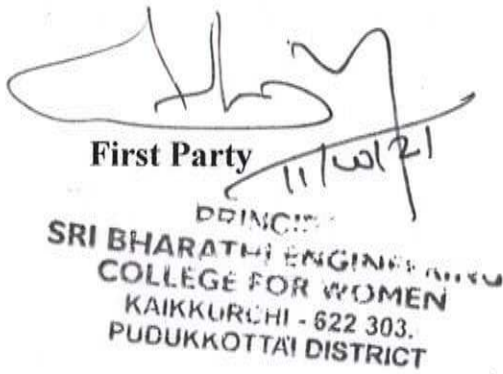 First Party
11/10/21
SRI BHARATHI ENGINEERING
COLLEGE FOR WOMEN
KAIKKURCHI - 622 303.
PUDUKKOTTAI DISTRICT